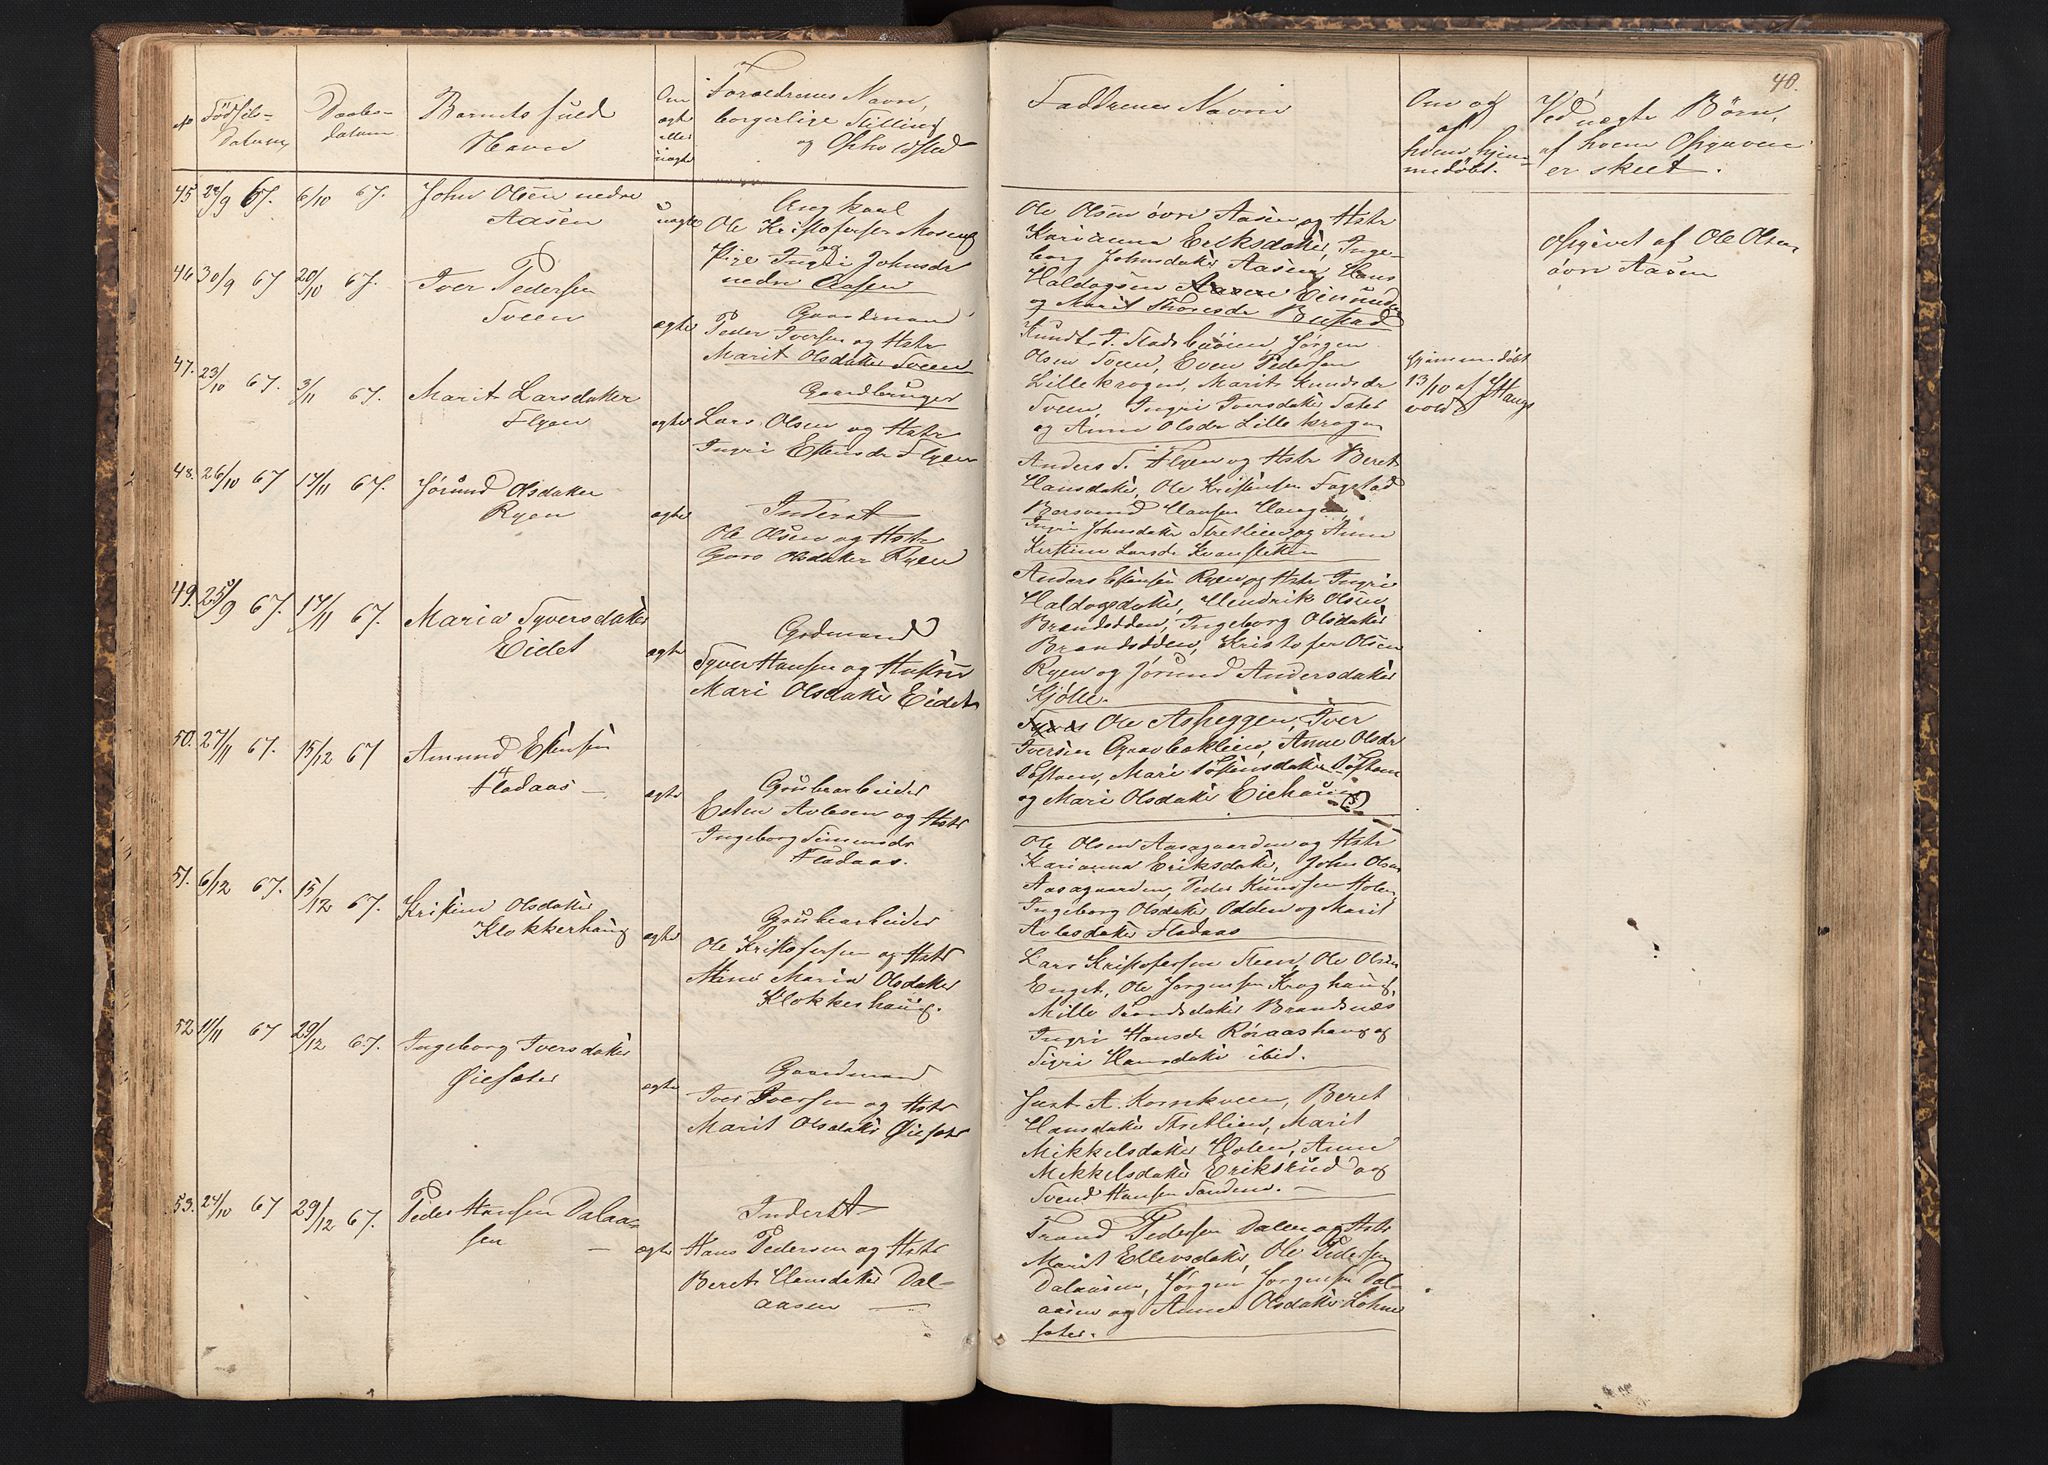 40.
No
Fødsels-
Datum,
Daabs-
datum
Barnets fuld
Navn
Om
ægte
eller
uægte
Forældrenes Navn,
borgerlige Stilling
og Opholdsted
Faddrenes Navn
Om og
af
hvem hjem-
medøbt.
Ved uægte Børn,
af hvem Opgaven
er skeet.
45 29/9 67. 6/10 67. John Olsen nedre
Aasen
uægte
Ungkarl
Ole Kristofersen Moseng
og
Pige Ingri Johnsdr
nedre Aasen
Ole Olsen øvre Aasen og Hstr
Karianna Eriksdater, Inge-
borg Johnsdater Aasen, Hans
Haldogsen Einunda
og Marit Thoresdr Bustad
Opgivet af Ole Olsen
øvre Aasen
46 30/9 67 20/10 67. Iver Pedersen
Tveen
ægte
Gaardmand
Peder Iversen og Hstr
Marit Olsdater Tveen
Kundt J. Stadsbuøien, Jørgen
Olsen Tveen, Even Pedersen
Lillekrogen, Marit Knudsdr
Tveen, Ingri Iversdater
og Anne Olsdr Lillekrogen
hjemmedøbt
13/10 af J Haugs
vold
47. 23/10 67. 3/11 67. Marit Larsdater
Flyen
ægte
Gaardbruger
Lars Olsen og Hstr
Ingri Estensdr Flyen
Anders T. Flyen og Hstr Beret
Hansdater, Ole Kristensen Fagstad
Bersvend Hansen Haugen,
Ingri Johnsdater Tretlien og Anne
Kirstine Larsdr Kvansletten
48. 26/10 67 17/11 67. Jørund Olsdater
Ryen
ægte
Inderst
Ole Olsen og Hstr
Goro Olsdater Ryen
Anders Estensen Ryen og Hstr Ingri
Haldogsdater, Hendrik Olsen
Brandsødden, Ingeborg Olsdater
Brandsødden, Kristofer Olsen
Ryen og Jørund Andersdater
Kjølle.
49. 25/9 67. 17/11 67. Maria Syversdater
Eidet
ægte
Grdmand
Syver Hansen og Hustru
Mari Olsdater Eidet
Ole Aspeggen, Iver
Iversen Graabaklien, Anne Olsdr
Mari Olsdater
og Mari Olsdater
50. 27/11 67. 15/12 67 Amund Estensen
Fladaas
ægte
Grubearbeider
Esten Avlesen og Hstr
Ingeborg Simensdr
Fladaas.
Ole Olsen Aasgaarden og Hstr
Karianna Eriksdater, John Olsen
Aasgaarden, Peder Knudsen Holen
Ingeborg Olsdater Odden og Marit
Avlesdater Fladaas
51. 6/12 67. 15/12 67. Kristine Olsdater
Klokkerhaug
ægte
Grubearbeider
Ole Kristofersen og Hstr
Maria Olsdater
Klokkerhaug.
Lars Kristofersen Steen, Ole Olsen
Enget, Ole Jørgensen Kroghaug,
Mille Trondsdater Brandsnæs
Ingri Hansdr Røraashaug og
Sigri Hansdater ibid.
52. 11/11 67 29/12 67. Ingeborg Iversdater
Øiesæter
ægte
Gaardmand
Iver Iversen og Hstr
Marit Olsdater Øiesæter
A. Kornkveen, Beret
Hansdater Tretlien, Marit
Mikkelsdater Holen, Anne
Mikkelsdater Eriksrud og
Svend Hansen Sanden.
53. 24/10 67 29/12 67. Peder Hansen Dalaa-
sen
ægte
Inderst
Hans Pedersen og Hstr
Beret Hansdater Dal-
aasen
Trond Pedersen Dalen og Hstr
Marit Ellevsdater, Ole Pedersen
Dalaasen, Jørgen Jørgensen Dal-
aasen og Anne Olsdater Lohne
sæter.